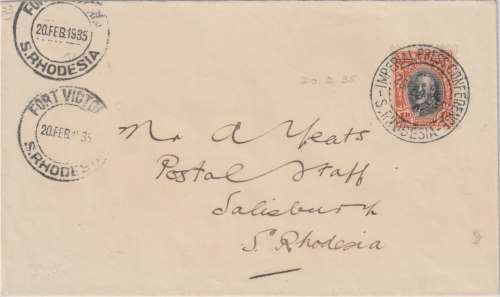 FORT VICTO
20.FEB.1935
S.RHODESIA
FORT VICTO
20.FEB.1935
S.RHODESIA
IMPERIAL PRESS CONFERENCE
S. RHODESIA
20.2.35
Mr A Yeats
Postal Staff
Salisbury
S. Rhodesia